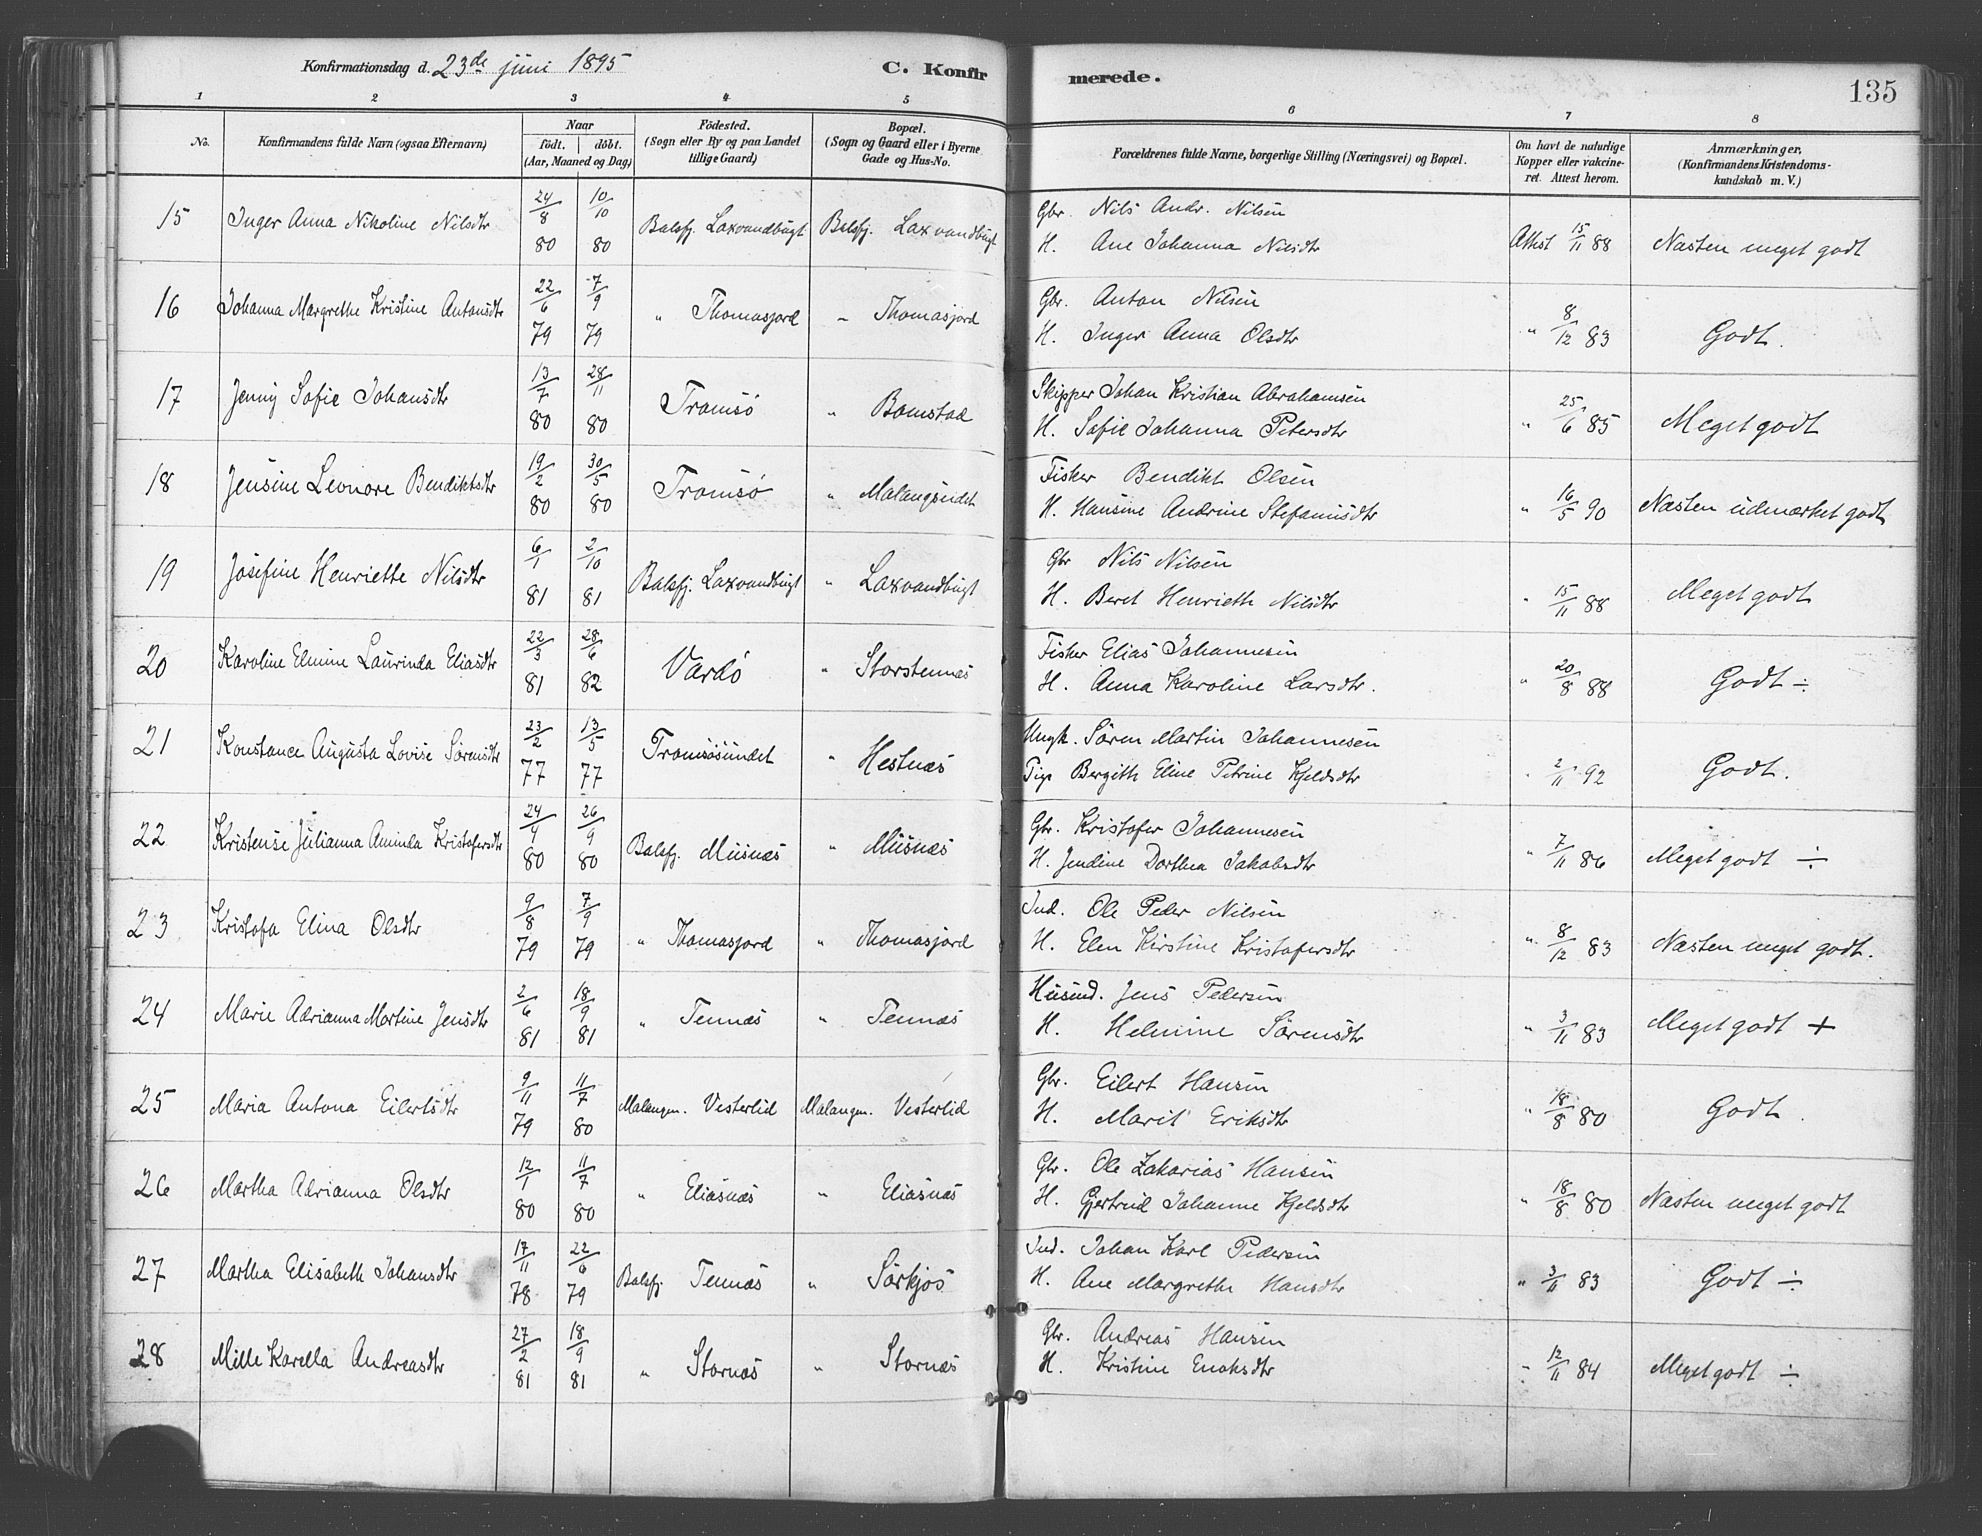 Konfirmationsdag d. 23de juni 1895 C. Konfirmerede. 135
1 2 3 4 5 6 7 8
No. Konfirmandens fulde Navn (ogsaa Efternavn) Naar födt. döbt. (Aar, Maaned og Dag) Födested. (Sogn eller By og paa Landet tillige Gaard) Bopæl. (Sogn og Gaard eller i Byerne Gade og Hus-No. Forældrenes fulde Navne, borgerlige Stilling (Næringsvei) og Bopæl. Om havt de naturlige Kopper eller vakcineret. Attest herom. Anmærkninger, (Konfirmandens Kristendomskundskab m. V.)
15 Inger Anna Nikoline Nilsdtr 24/8 80 10/10 80 Balsfj. Laxvandbugt Balsfj. Laxvandbugt Gbr. Nils Andr. Nilsen
H. Ane Johanna Nilsdtr Attest 15/11 88 Næsten meget godt
16 Johanna Margrethe Kristine Antonsdtr 22/6 79 7/9 79 " Thomasjord " Thomasjord Gbr. Anton Nilsen
H. Inger Anna Olsdtr " 8/12 83 Godt.
17 Jenny Sofie Johansdtr 13/7 80 28/11 80 Tromsö " Bomstad Skipper Johan Kristian Abrahamsen
H. Sofie Johanna Petersdtr " 25/6 85 Meget godt
18 Jensine Leonore Bendiktsdtr 19/2 80 30/5 80 Tromsö " Malangseidet Fisker Bendikt Olsen
H. Hansine Andrine Stefanusdtr " 16/5 90 Næsten udmærket godt
19 Josefine Henriette Nilsdtr 6/1 81 2/10 81 Balsfj. Laxvandbugt " Laxvandbugt Gbr Nils Nilsen
H. Beret Henrieth Nilsdtr " 15/11 88 Meget godt
20 Karoline Elmine Laurinda Eliasdtr 22/3 81 28/6 82 Vardö " Storstennæs Fisker Elias Johannesen
H. Anna Karoline Larsdtr. " 20/8 88 Godt ÷
21 Konstance Augusta Lovise Sörensdtr 23/2 77 13/5 77 Tromsösundet " Hestnæs Ungk. Sören Martin Johannesen
Pige Bergith Eline Petrine Kjeldsdtr " 2/11 92 Godt.
22 Kristense Julianna Aminda Kristofersdtr 24/4 80 26/9 80 Balsfj. Musnæs " Musnæs Gbr. Kristofer Johannesen
H. Jendine Dorthea Jakobsdtr " 7/11 86 Meget godt ÷
23 Kristofa Elina Olsdtr 9/8 79 7/9 79 " Thomasjord " Thomasjord Ind. Ole Peder Nilsen
H. Elen Kirstine Kristofersdtr " 8/12 83 Næsten meget godt.
24 Marie Adrianna Martine Jensdtr 2/6 81 18/9 81 " Tennæs " Tennæs Husmd. Jens Pedersen
H. Helmine Sörensdtr " 3/11 83 Meget godt +
25 Maria Antona Eilertsdtr 9/11 79 11/7 80 Malangen. Vesterlid Malangen. Vesterlid Gbr. Eilert Hansen
H. Marit Eriksdtr " 18/8 80 Godt.
26 Martha Adrianna Olsdtr 12/1 80 11/7 80 " Eliasnæs " Eliasnæs Gbr. Ole Zakarias Hansen
H. Gjertrud Johanne Kjeldsdtr " 18/8 80 Næsten meget godt
27 Martha Elisabeth Johansdtr 17/11 78 22/6 79 Balsfj. Tennæs " Sörkjos Ind. Johan Karl Pedersen
H. Ane Margrethe Hansdtr " 3/11 83 Godt ÷
28 Mille Karella Andreasdtr 27/2 81 18/9 81 " Stornæs " Stornæs Gbr. Andreas Hansen
H. Kristine Enoksdtr " 12/11 84 Meget godt ÷